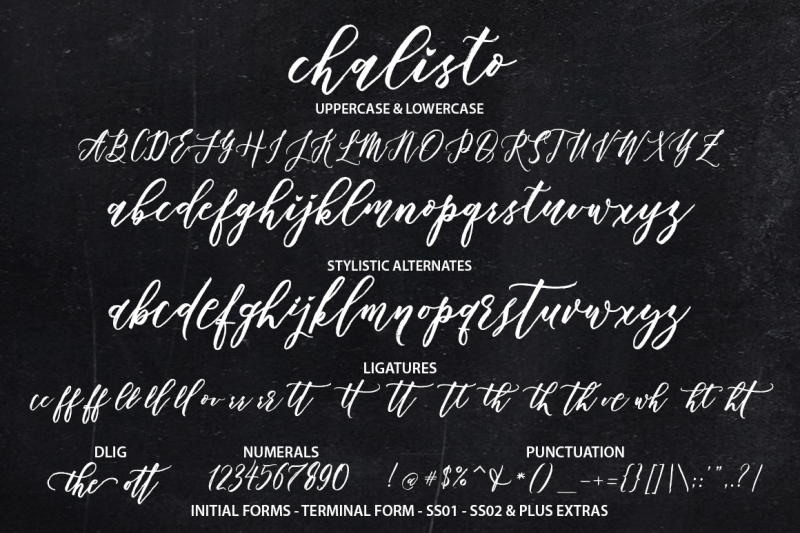 chalisto
UPPERCASE & LOWERCASE
ABCDEFGHIJKLMNOPQRSTUVWXYZ
abcdefghijklmnopqrstuvwxyz
STYLISTIC ALTERNATES
abcdefghijklmnopqrstuvwxyz
LIGATURES
cc ff ff ll ll ll ov rr rr tt tt tt tt th th th ve wh ht ht
DLIG NUMERALS PUNCTUATION
the ott 1234567890 ! @ # $ % ^ & * () _ - + = { } [ ] | \ ; : ' " , . ? /
INITIAL FORMS - TERMINAL FORM - SS01 - SS02 & PLUS EXTRAS